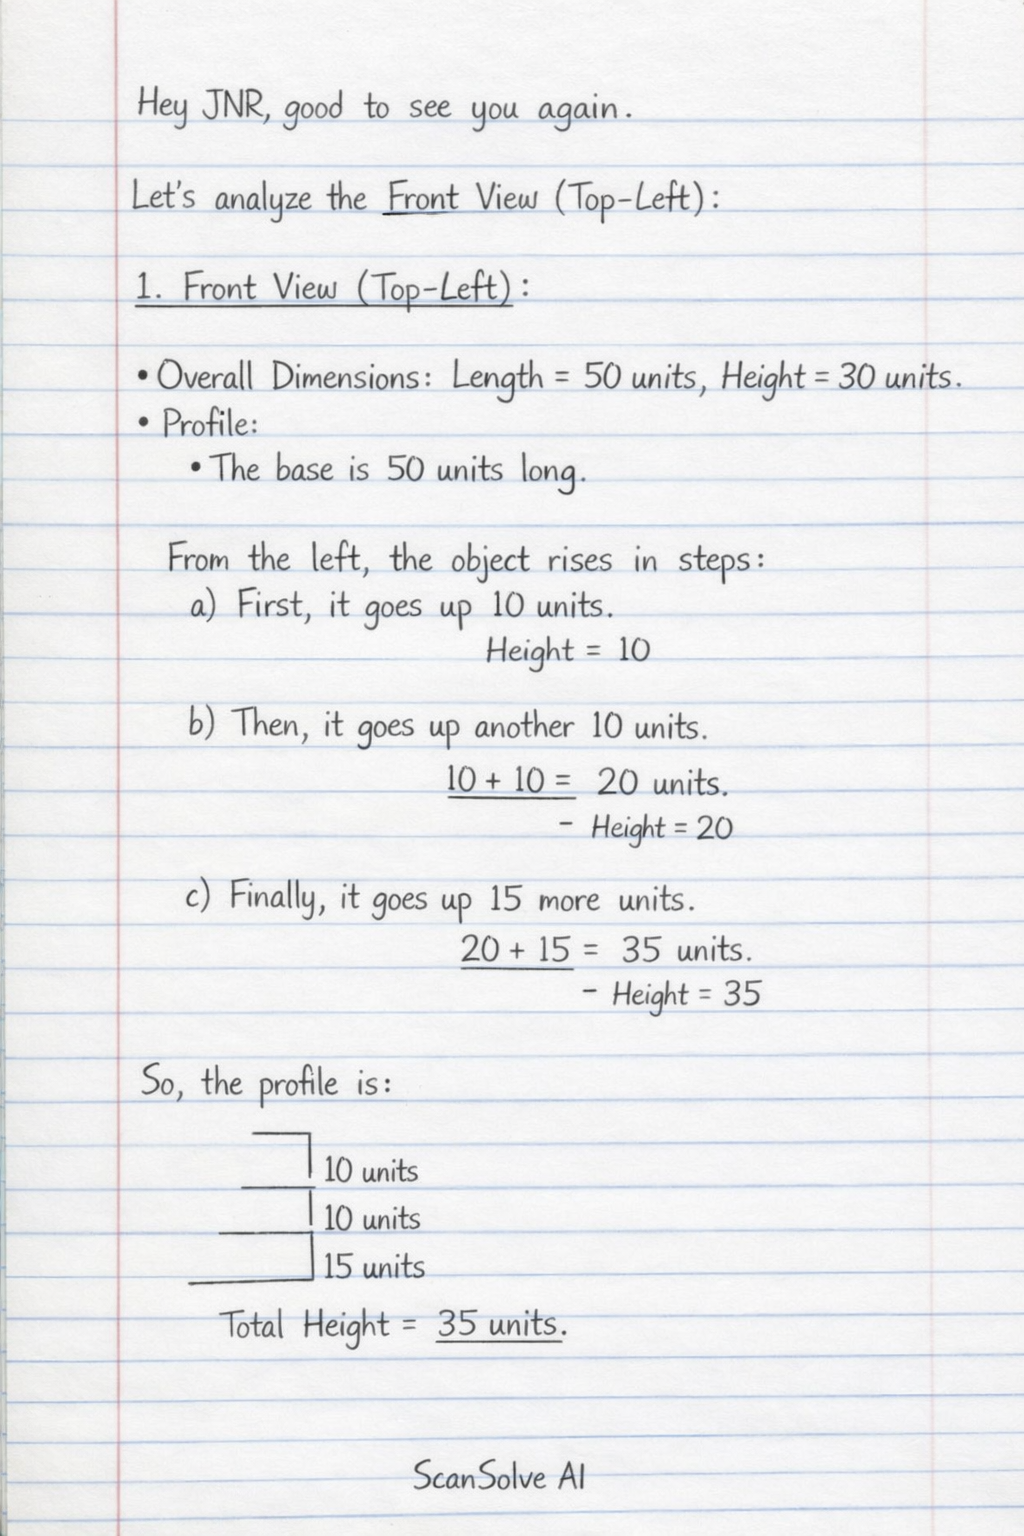 Hey JNR, good to see you again.
Let's analyze the Front View (Top-Left):
1. Front View (Top-Left):
• Overall Dimensions: Length = 50 units, Height = 30 units.
• Profile:
• The base is 50 units long.
From the left, the object rises in steps:
a) First, it goes up 10 units.
Height = 10
b) Then, it goes up another 10 units.
10 + 10 = 20 units.
- Height = 20
c) Finally, it goes up 15 more units.
20 + 15 = 35 units.
- Height = 35
So, the profile is:
10 units
10 units
15 units
Total Height = 35 units.
ScanSolve AI